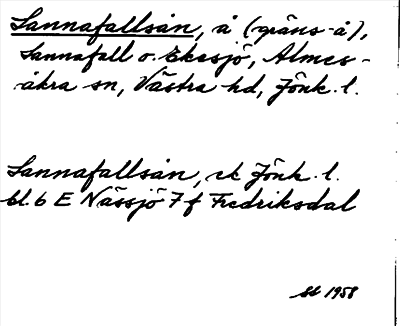 Sannafallsån, å (gräns-å),
Sannafall o. Ekesjö, Almes-
åkra sn, Västra hd, Jönk. l.
Sannafallsån, ek Jönk. l.
bl. 6 E Nässjö 7 f Fredriksdal
1958